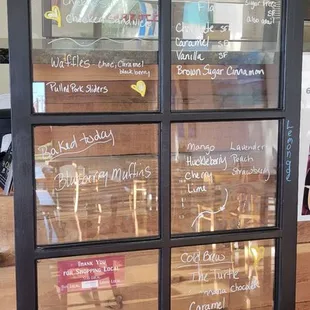 Chicken Salad
Waffles Choc, Caramel
blackberry
Pulled Pork Sliders
Fla
Chocolate SF
Caramel SF
Vanilla SF
Brown Sugar Cinnamon
Sugar free
also
Baked today
Blueberry Muffins
Mango Lavender
Huckleberry Peach
Cherry Strawberry
Lime
Lemonade
THANK YOU
FOR SHOPPING LOCAL
Cold Brew
The Turtle
Chocolate
Caramel